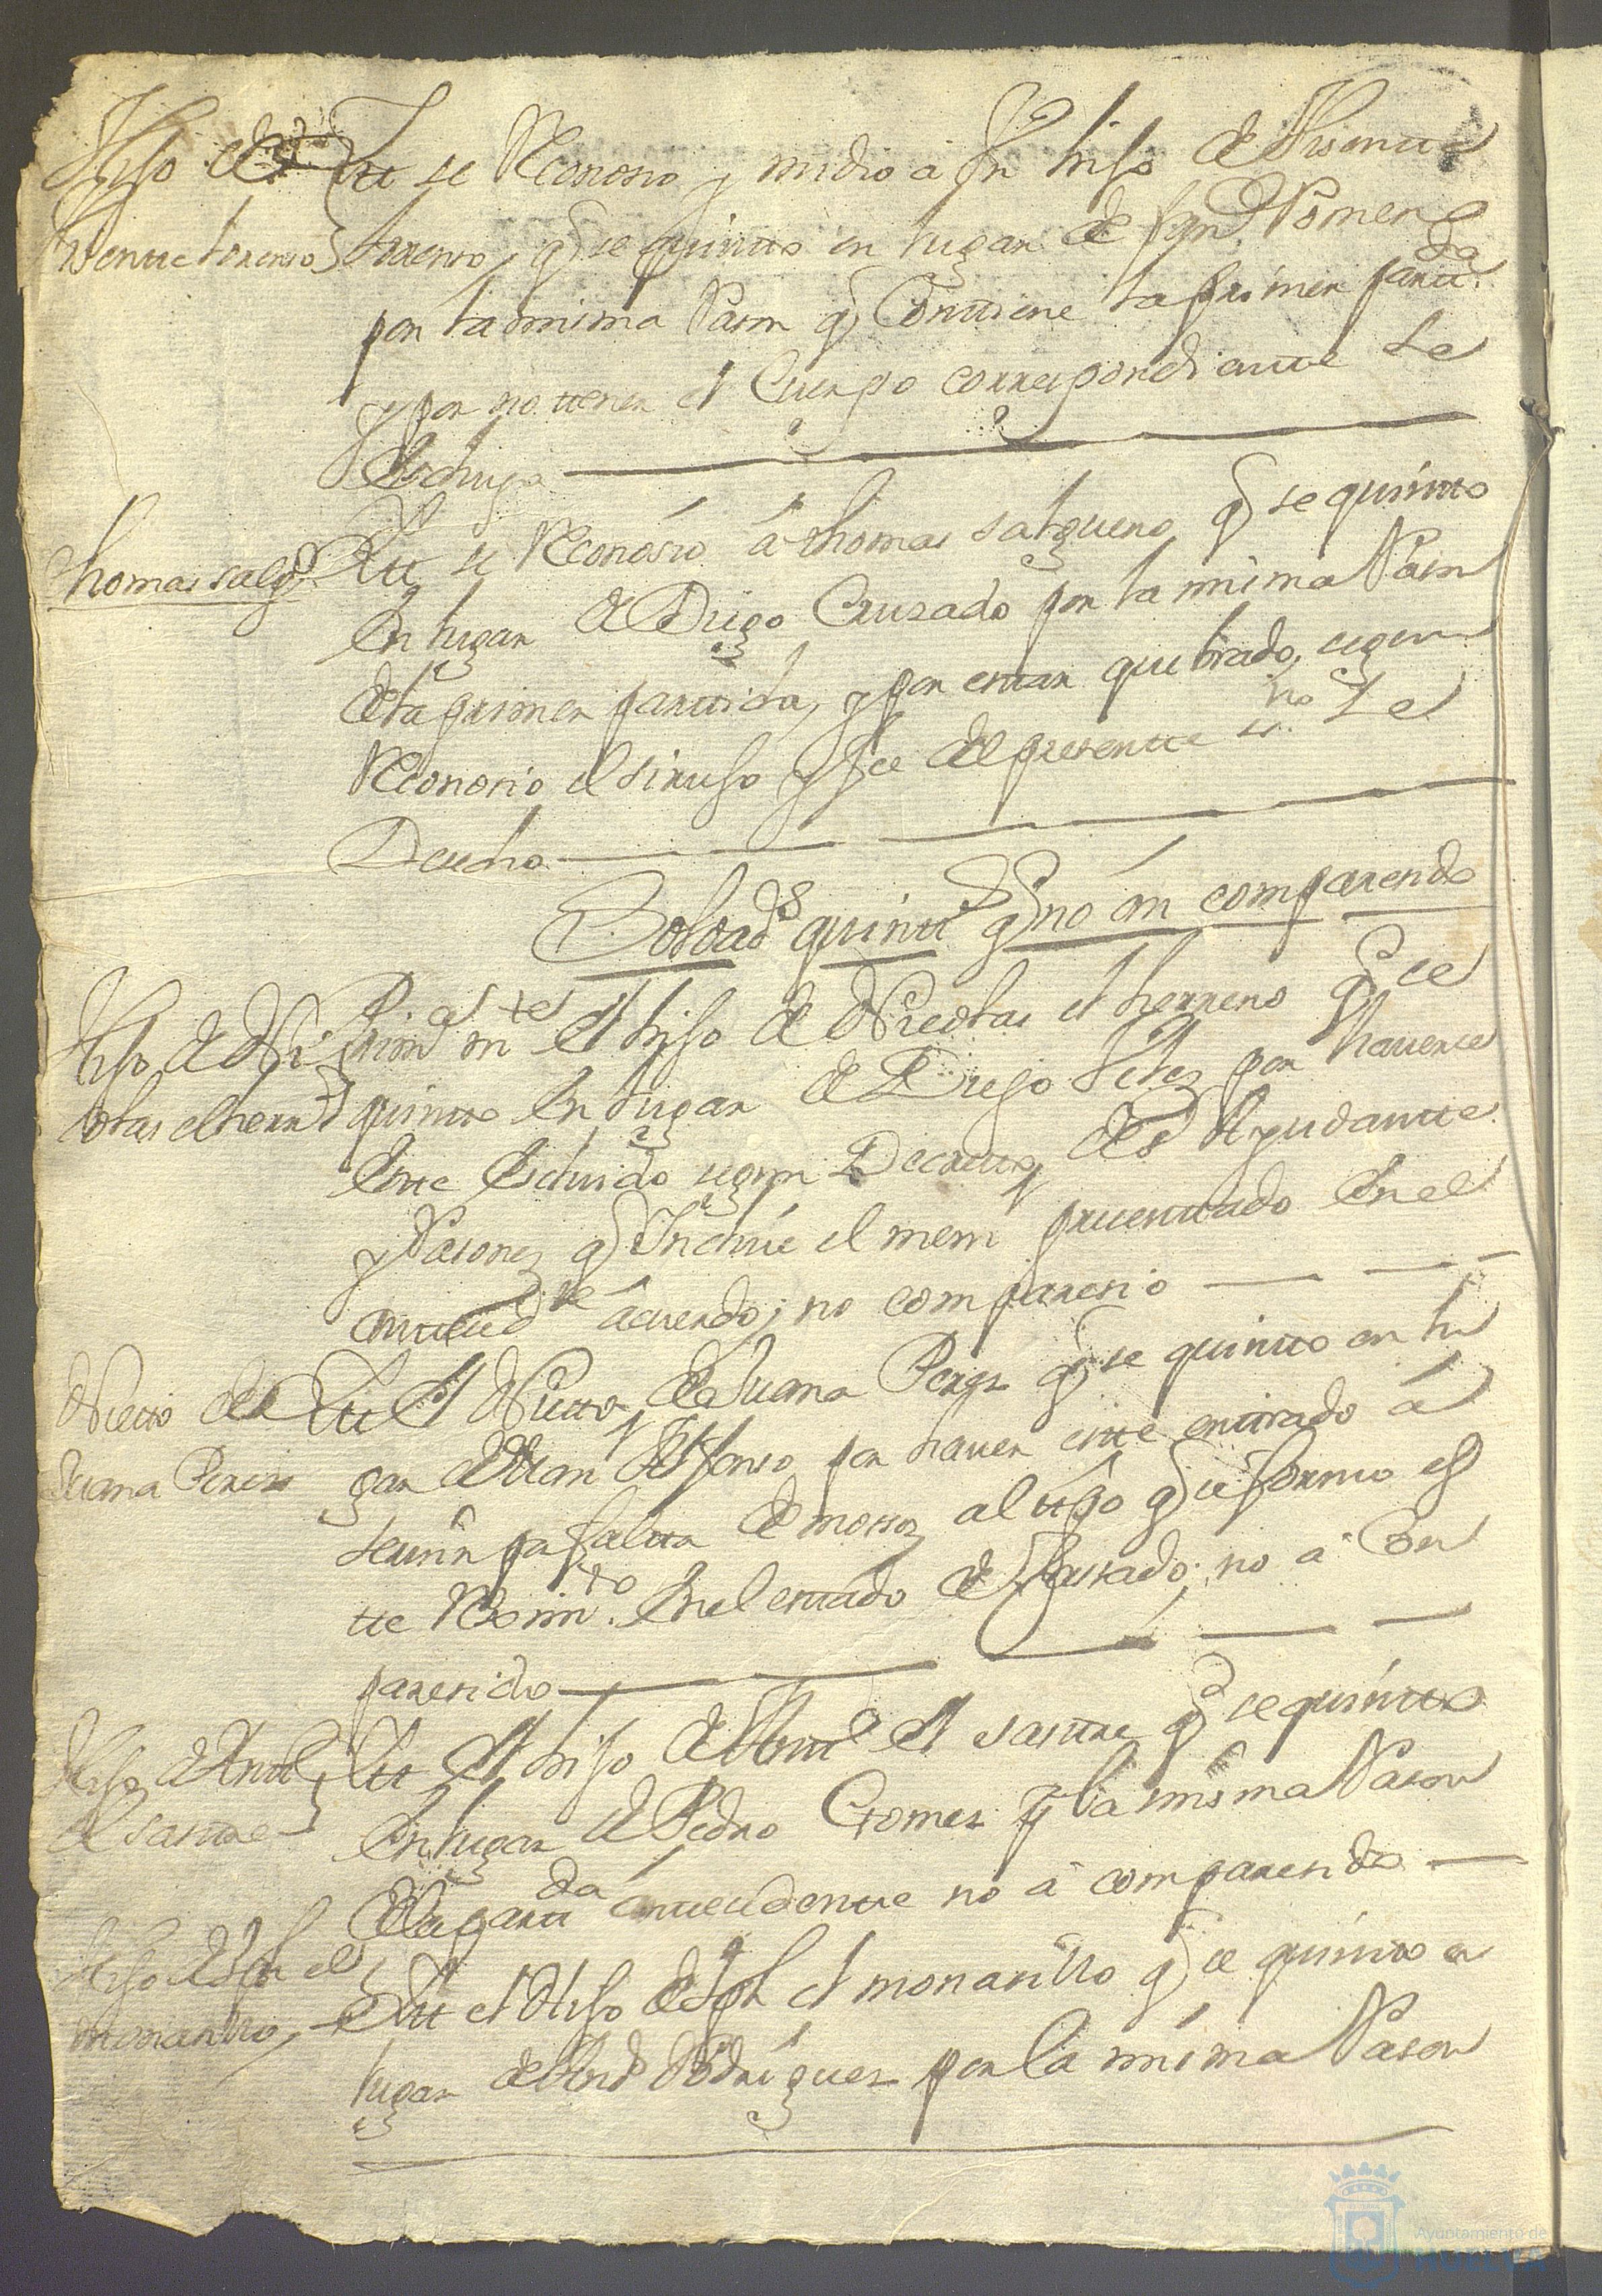 Hijo de
Visentte Lorenso
Itt se Reconosio y midio a Jn hijo de Visentte
Lorenso, q se quintto en lugar de Jn Romero
por la mima Rason q Conttiene la primer partt.da
y por no ttener el Cuerpo correspondientte Se
Escluyo
Thomas Salg.o
Itt se Reconosio á thomas salguero q se quintto
En lugar de Diego Cruzado por la mima Rason
de la primer parttida, y por esttar quebrado, segun
Reconosio el siruJo y fee del presentte ss.no Se
Desecho
Soldad.s quintt.s q no án comparesido
Hijo de Ni
colas el herr.o
Prim.am.te El hijo de Nicolas el herrero q se
quintto En lugar de Diego Veles por haverse
Estte Escluido segun Decretto del Ayudantte
y Rasones q Incluie el mem.l presenttado En el
anttesed.te ácuerdo; no comparesio
Nietto de
Juana Peres
Itt El Nietto de Juana Peres q se quintto en lu
gar de Juan Alfonso por haver estte enttrado á
servir pr falta de mosos al ttpo q se formo es
tte Reximto. En el esttado de Casado; no á Com
paresido
Hijo de Antt.o
el sastre
Itt El hijo de Antt.o El sastre q se quintto
En lugar de Pedro Gomes pr la misma Rason
de la partt.da anttesedentte no á comparesido
Hijo de Jph el
monasillo
Itt el Hijo de Jph el monasillo q se quintto en
lugar de And.s Rodrigues por la misma Rason
Ayuntamiento de
HUELVA